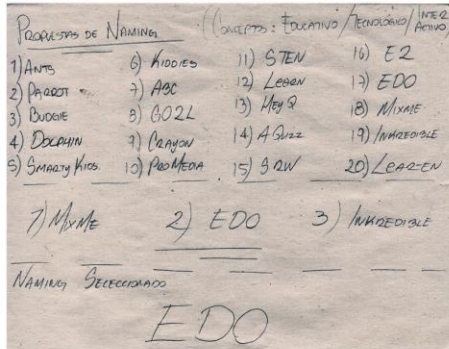 Propuestas de Naming (Concepto: Educativo/Tecnológico/Interactivo)
1) Ants
2) Parrot
3) Budgie
4) Dolphin
5) Smarty Kids
6) Kiddies
7) ABC
8) GO2L
9) Crayon
10) ProMedia
11) STEN
12) Learn
13) Hey Q
14) A Quzz
15) SRW
16) E2
17) EDO
18) Mixme
19) Inkredible
20) Lear-en
1) MixMe 2) EDO 3) Inkredible
Naming Seleccionado
EDO